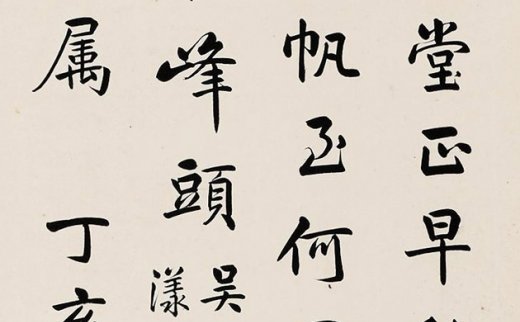 堂正早
帆至何
峰頭
吴
漾
属 丁亥